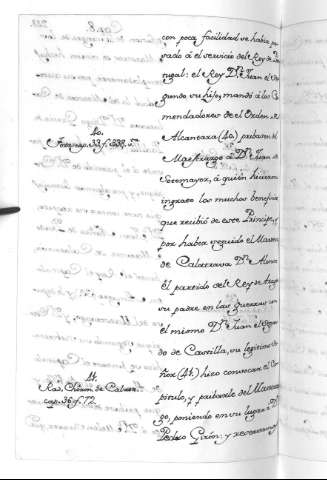 con poca facilidad se habia pa
sado á el servicio del Rey de Por
tugal: el Rey Dn. Juan el Se
gundo su hijo, mandó á los Co
mendadores de el Orden de
Alcantara (40.) privasen del
Maestrazgo á Dn. Juan de
Sotomayor, á quién hicieron
ingrato los muchos beneficios
que recibió de este Principe, y
por haber seguido el Maestre
de Calatrava Dn. Alonso
el partido del Rey de Aragon
su padre en las guerras con
el mismo Dn. Juan el Segun
do de Castilla, su legitimo Se
ñor (41.) hizo convocar el Ca
pitulo, y privarle del Maestraz
go, poniendo en su lugar á Dn.
Pedro Girón: y
40.
cap. 33. f.
41.
Rad. Chron. de Calatr.
cap. 36. f. 72.